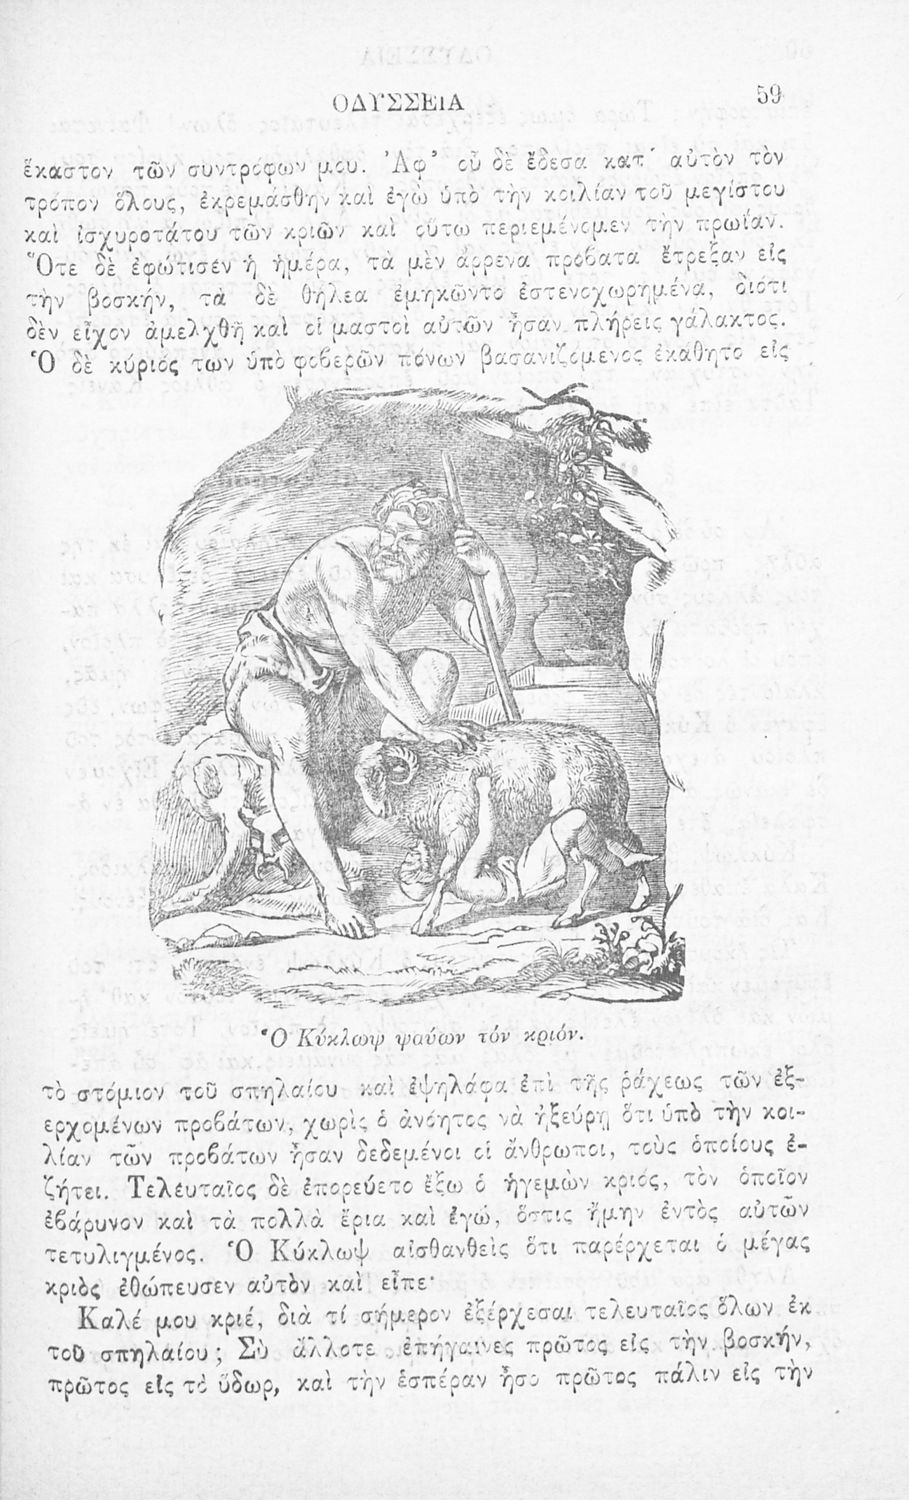 ΟΔΥΣΣΕΙΑ
59
ἕκαστον τῶν συντρόφων μου. Ἀφ' οὗ δὲ ἔδεσα κατ' αὐτὸν τὸν
τρόπον ὅλους, ἐκρεμάσθην καὶ ἐγὼ ὑπὸ τὴν κοιλίαν τοῦ μεγίστου
καὶ ἰσχυροτάτου τῶν κριῶν καὶ οὕτω περιεμένομεν τὴν πρωΐαν.
Ὅτε δὲ ἐφώτισεν ἡ ἡμέρα, τὰ μὲν ἄρρενα πρόβατα ἔτρεξαν εἰς
τὴν βοσκήν, τὰ δὲ θήλεα ἐμηκῶντο ἐστενοχωρημένα, διότι
δὲν εἶχον ἀμελχθῆ καὶ οἱ μαστοὶ αὐτῶν ἦσαν πλήρεις γάλακτος.
Ὁ δὲ κύριός των ὑπὸ φοβερῶν πόνων βασανιζόμενος ἐκάθητο εἰς
Ὁ Κύκλωψ ψαύων τὸν κριόν.
τὸ στόμιον τοῦ σπηλαίου καὶ ἐψηλάφα ἐπὶ τῆς ῥάχεως τῶν ἐξ-
ερχομένων προβάτων, χωρὶς ὁ ἀνόητος νὰ ἠξεύρῃ ὅτι ὑπὸ τὴν κοι-
λίαν τῶν προβάτων ἦσαν δεδεμένοι οἱ ἄνθρωποι, τοὺς ὁποίους ἐ-
ζήτει. Τελευταῖος δὲ ἐπορεύετο ἔξω ὁ ἡγεμὼν κριός, τὸν ὁποῖον
ἐβάρυνον καὶ τὰ πολλὰ ἔρια καὶ ἐγώ, ὅστις ἤμην ἐντὸς αὐτῶν
τετυλιγμένος. Ὁ Κύκλωψ αἰσθανθεὶς ὅτι παρέρχεται ὁ μέγας
κριὸς ἐθώπευσεν αὐτὸν καὶ εἶπε·
Καλέ μου κριέ, διὰ τί σήμερον ἐξέρχεσαι τελευταῖος ὅλων ἐκ
τοῦ σπηλαίου; Σὺ ἄλλοτε ἐπήγαινες πρῶτος εἰς τὴν βοσκήν,
πρῶτος εἰς τὸ ὕδωρ, καὶ τὴν ἑσπέραν ἦσο πρῶτος πάλιν εἰς τὴν